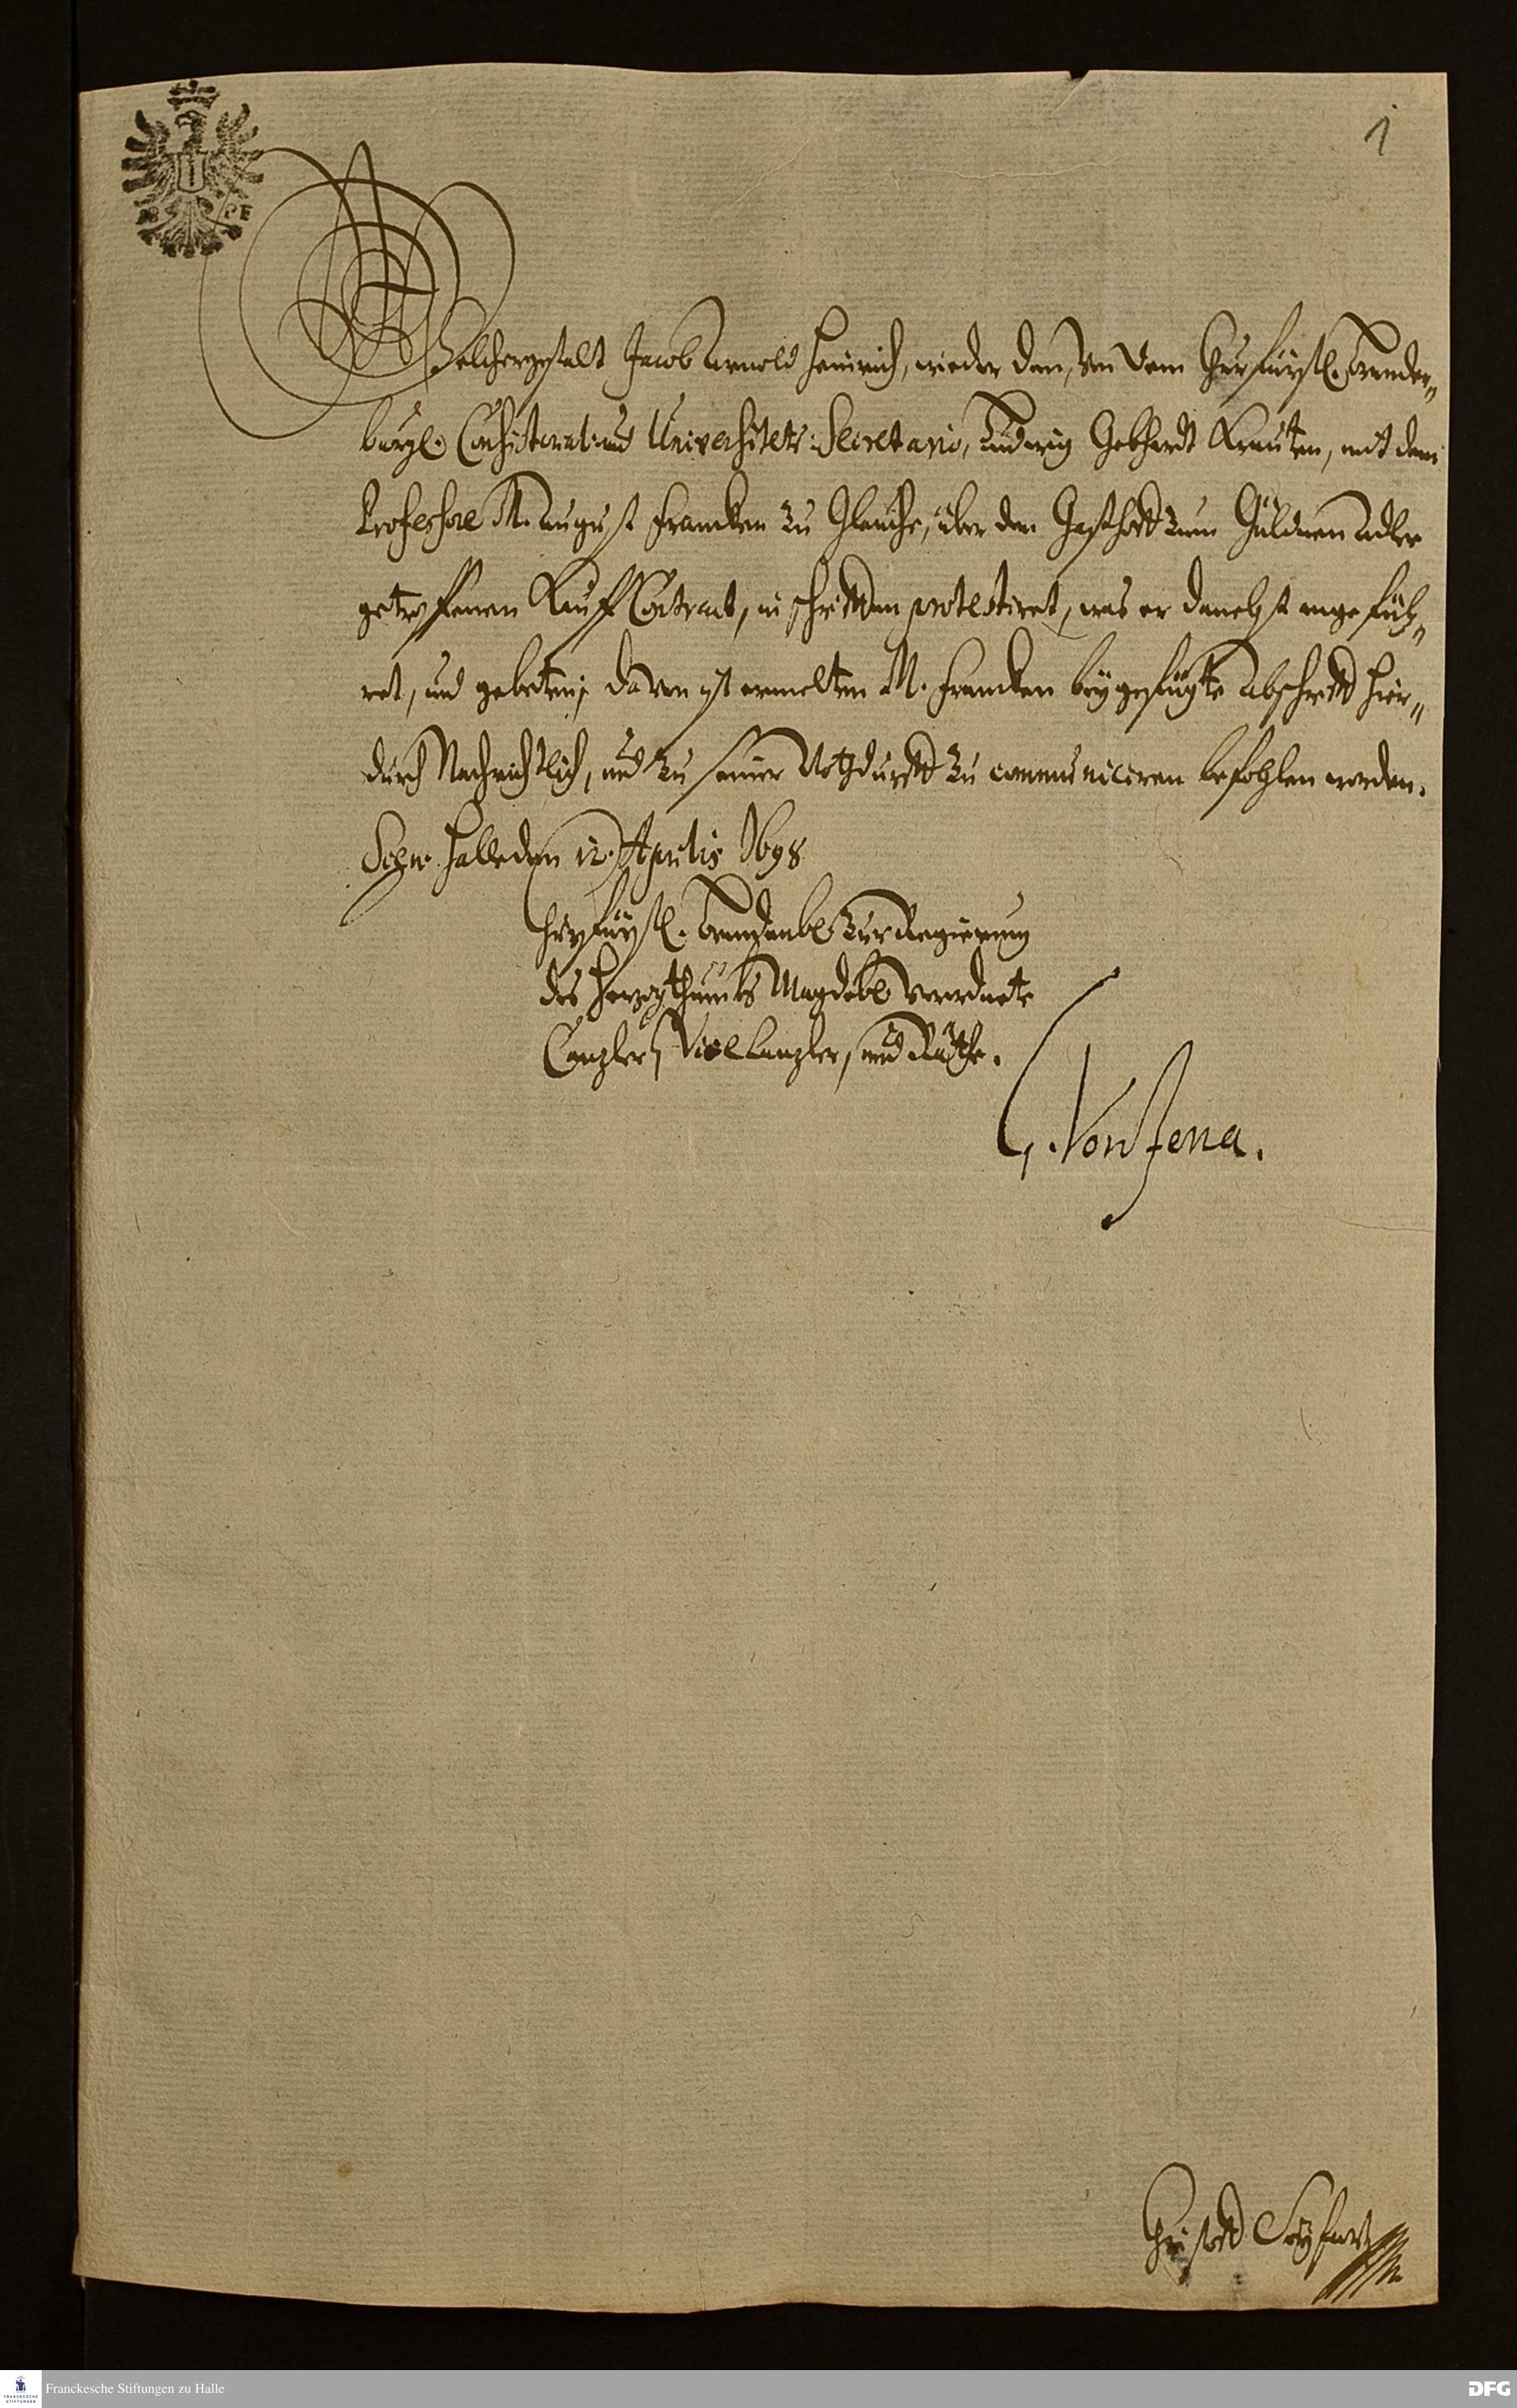 1
Welchergestalt Jacob Arnold Heinrich, wieder den, von dem Churfürstl. Branden„
burgl. Consistorial: und Universitets: Secretario, Ludwig Gebhardt Krauten, mit dem
Professore M. August Francken zu Glauche, über den Gasthoff zum Güldnen Adler
getroffenen Kauff Contract, in schrifften protestiret, was er danebst angefüh„
ret, und gebeten; davon ist ermelten M. Francken beygefügte Abschrifft hier„
durch Nachrichtlich, und zu seiner Nothdurfft zu communiciren befohlen worden.
Sign. Halle den 12. Aprilis 1698
Churfürstl. Brandenb. zur Regierung
des Herzogthumbs Magdeb. verordnete
Canzler, Vice Canzler, und Räthe.
G. Von Jena.
Christoff Seyfart
Franckesche Stiftungen zu Halle
DFG